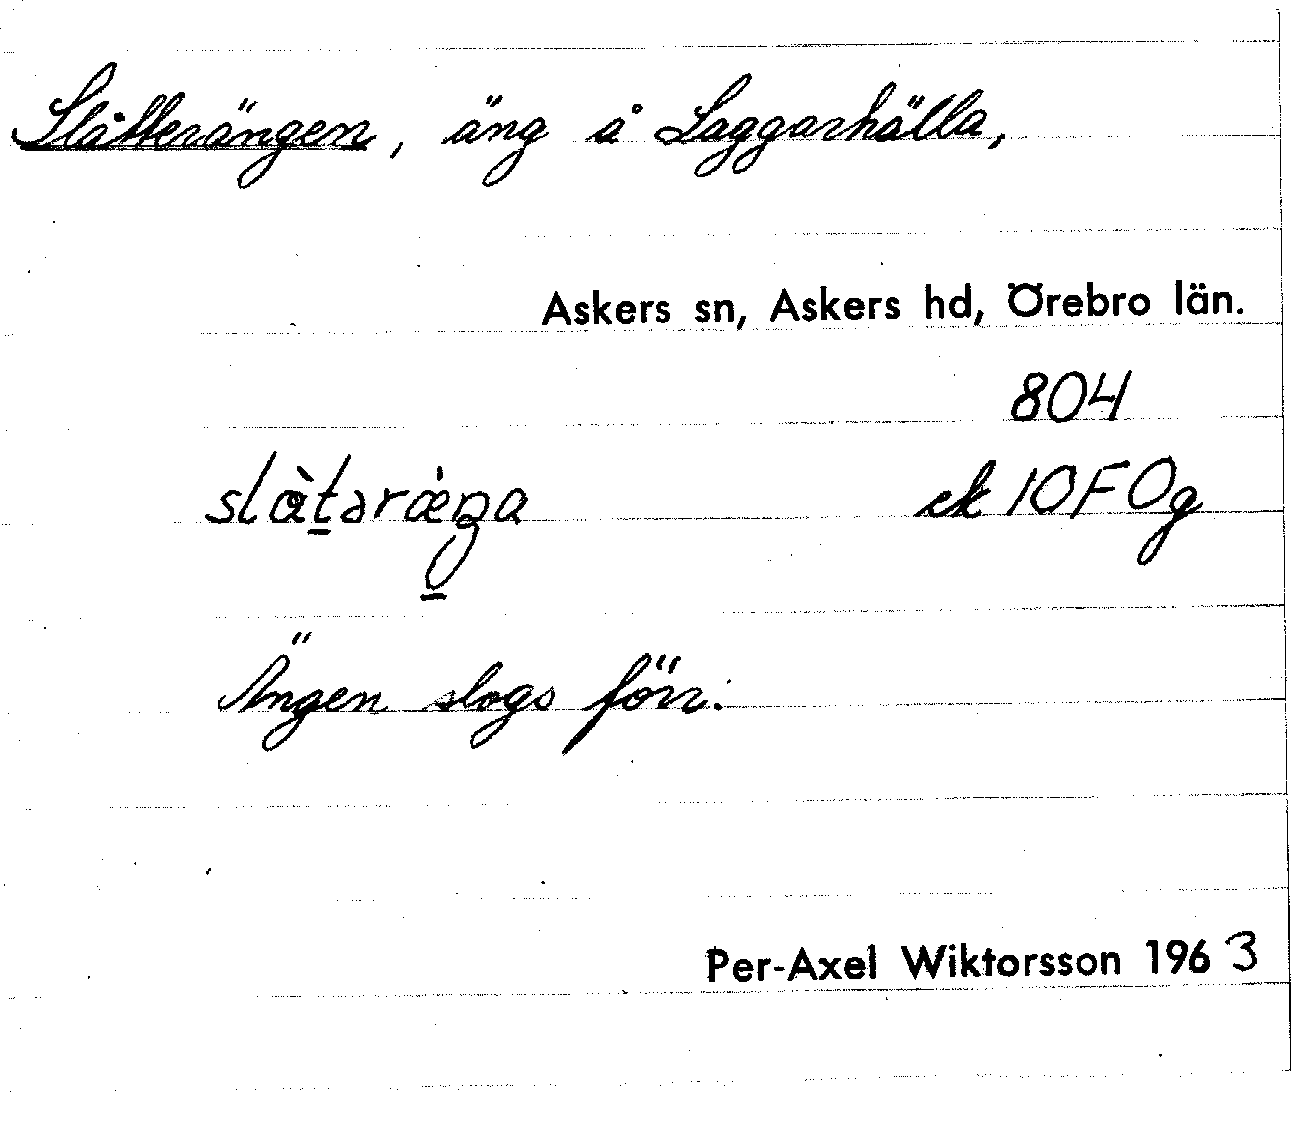 Slåtterängen, äng å Laggarhälla,
Askers sn, Askers hd, Örebro län.
804
slàt̲əræ̀ŋ̲a ek 10F0g
Ängen slogs förr.
Per-Axel Wiktorsson 1963